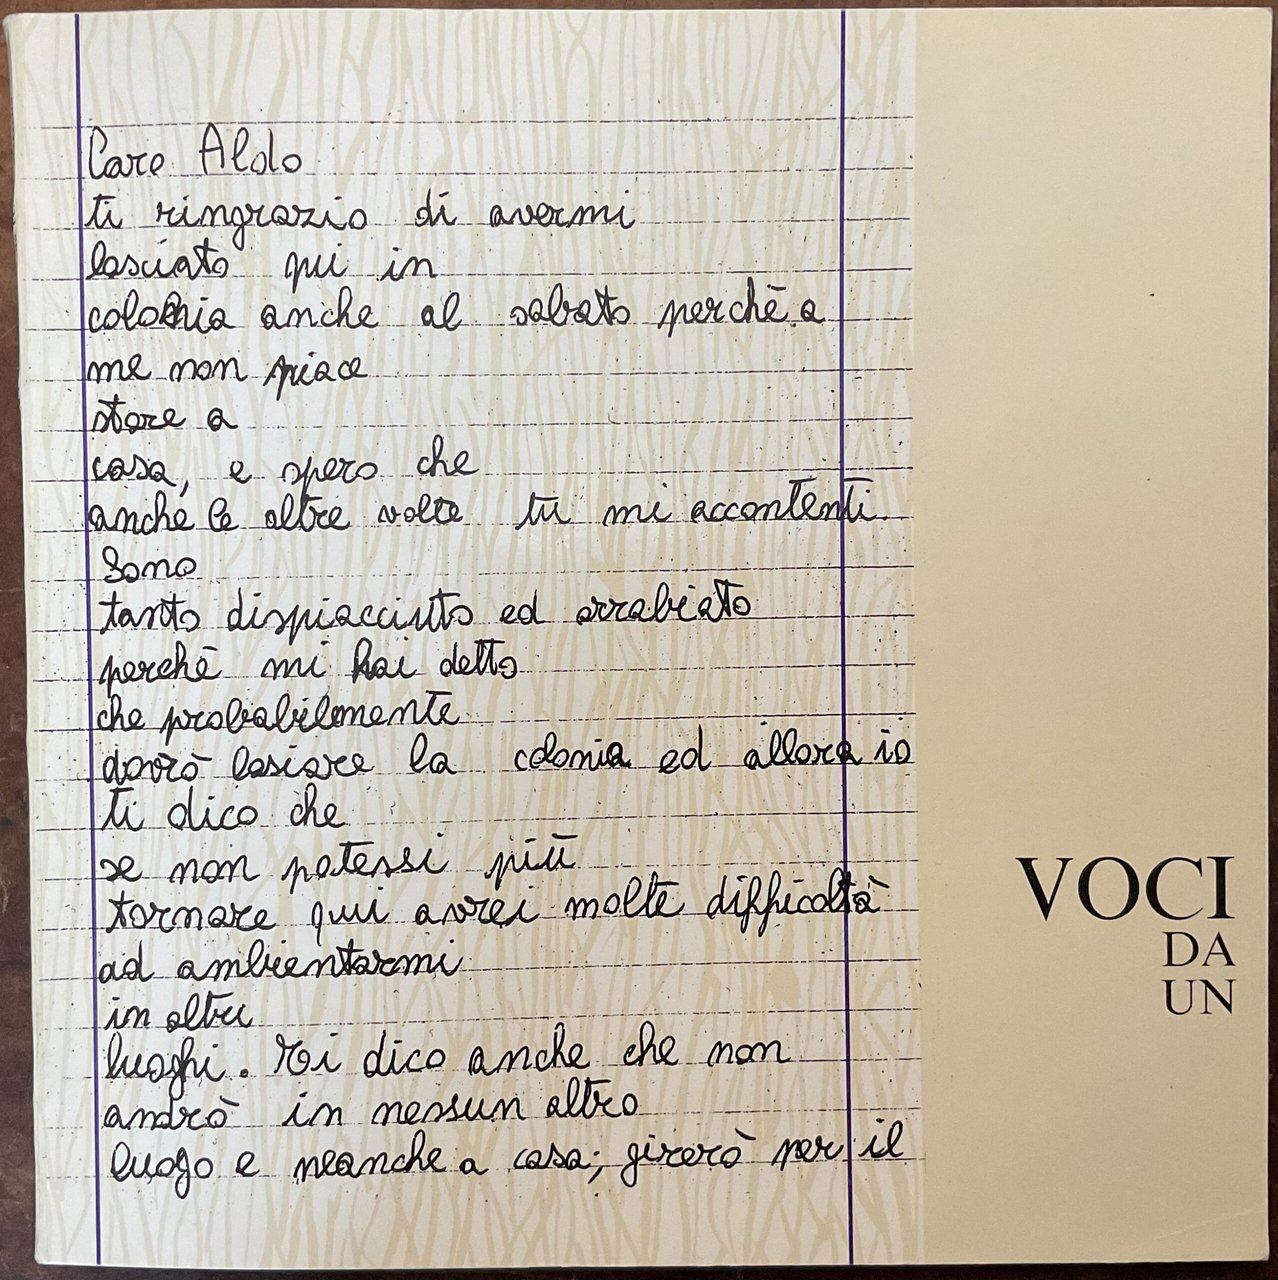 Caro Aldo
ti ringrazio di avermi
lasciato qui in
colonia anche al sabato perchè a
me non piace
stare a
casa, e spero che
anche le altre volte tu mi accontenti.
Sono
tanto dispiacciuto ed arrabiato
perchè mi hai detto
che probabilmente
dovrò lasiare la colonia ed allora io
ti dico che
se non potessi più
tornare qui avrei molte difficoltà
ad ambientarmi
in altri
luoghi. Ti dico anche che non
andrò in nessun altro
luogo e neanche a casa; girerò per il
VOCI
DA
UN